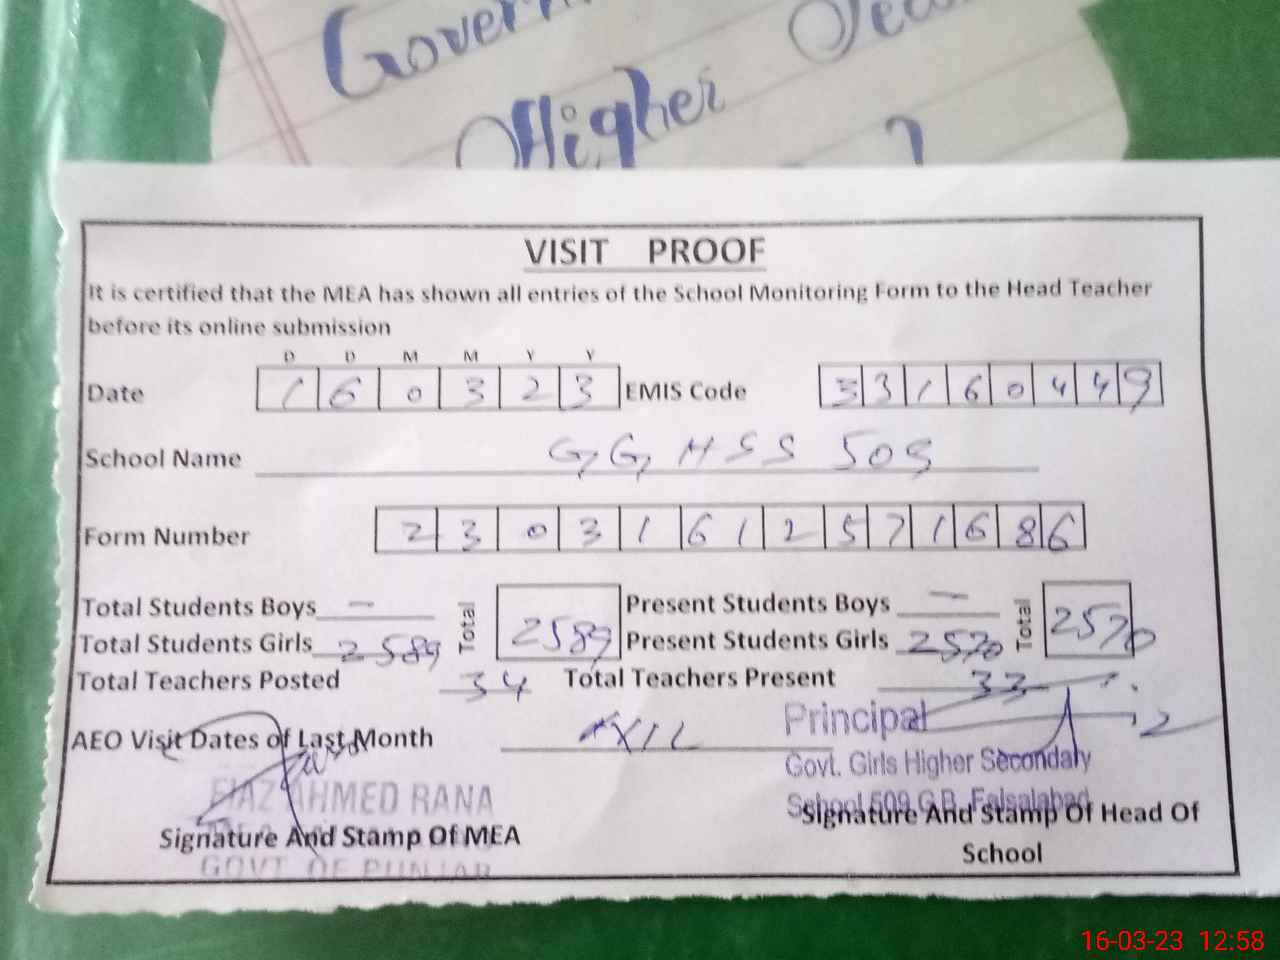 Govern
Higher
VISIT PROOF
It is certified that the MEA has shown all entries of the School Monitoring Form to the Head Teacher
before its online submission
D D M M Y Y
Date 1 6 0 3 2 3 EMIS Code 3 3 1 6 0 4 4 9
School Name GG HSS 509
Form Number 2 3 0 3 1 6 1 2 5 7 1 6 8 6
Total Students Boys — Total 2589 Present Students Boys — Total 2570
Total Students Girls 2589 Present Students Girls 2570
Total Teachers Posted 34 Total Teachers Present 33
AEO Visit Dates of Last Month
Principal
Govt. Girls Higher Secondary
School 509 G.B. Faisalabad
AHMED RANA
Signature And Stamp Of MEA
Signature And Stamp Of Head Of
School
GOVT OF PUNJAB
16-03-23 12:58